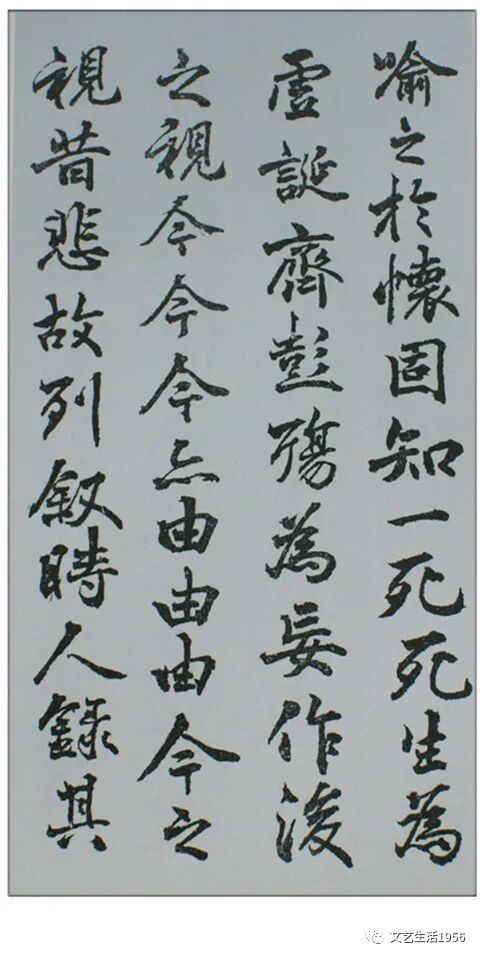 喻之於懷固知一死死生為
虛誕齊彭殤為妄作後
之視今今今亦由由由今之
視昔悲故列敘時人錄其
文艺生活1956